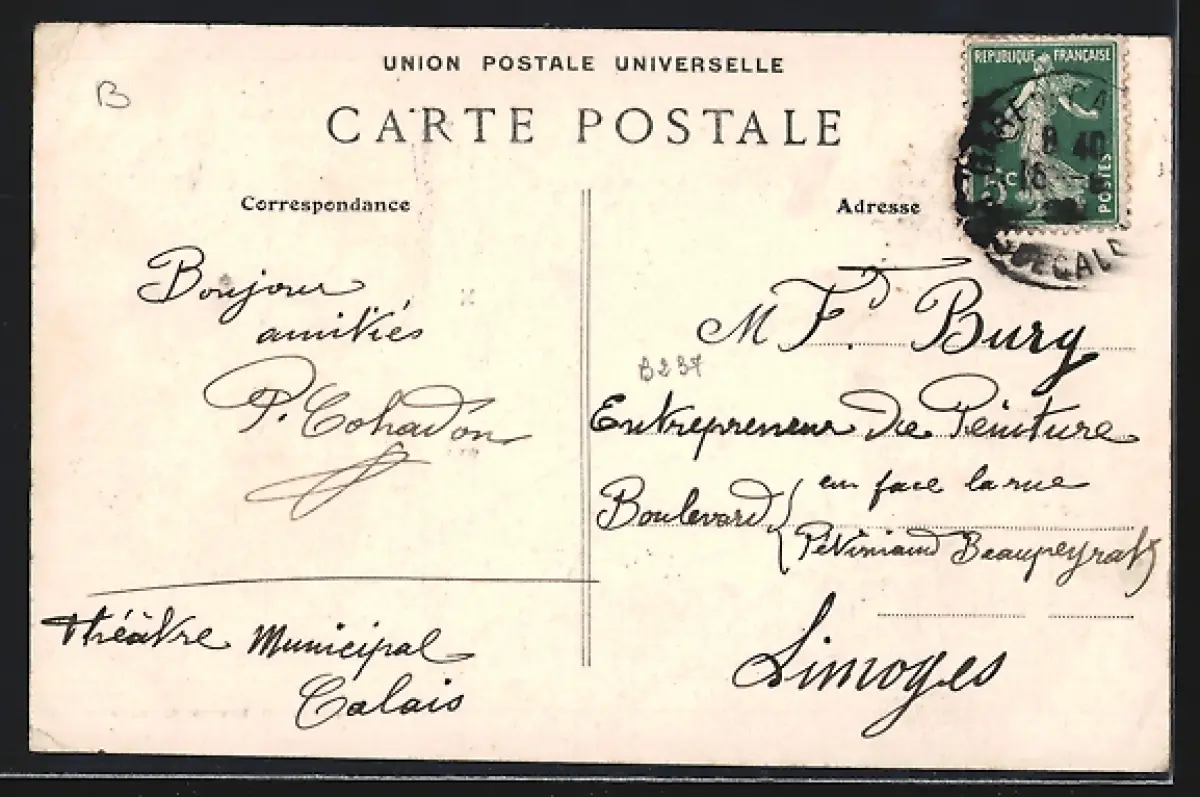 UNION POSTALE UNIVERSELLE
CARTE POSTALE
B
Correspondance
Bonjour
amitiés
P. Cohadon
Théâtre Municipal
Calais
Adresse
REPUBLIQUE FRANÇAISE
POSTES
8 40
16
CALAIS
M F. Bury
B237
Entrepreneur De Peinture
Boulevard
en face la rue
Pétiniaud Beaupeyrat
Limoges